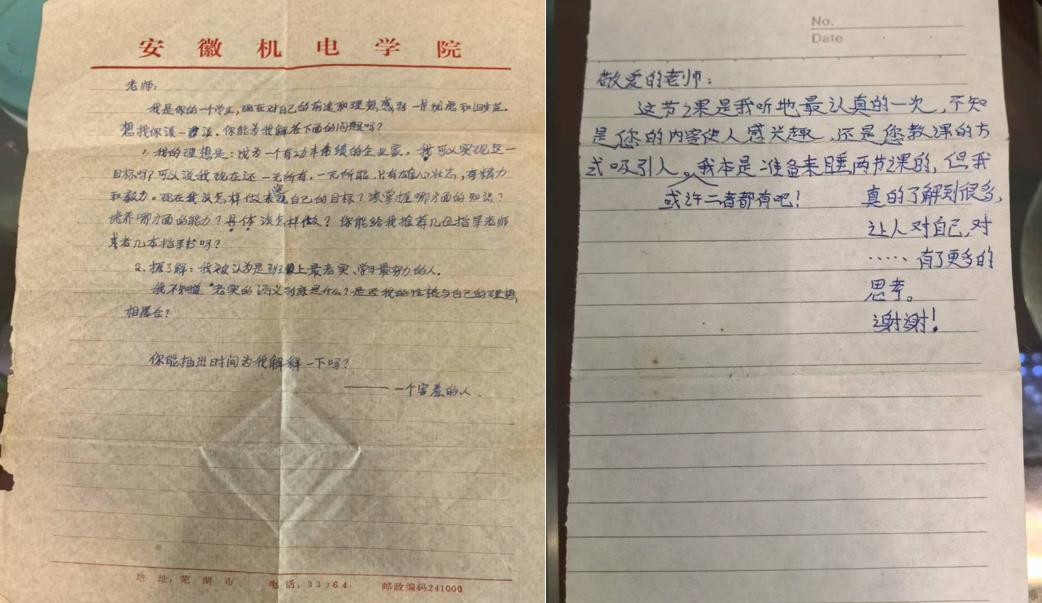 安徽机电学院
老师：
我是你的一个学生，现在对自己的前途和理想感到一片忧虑和
想找你谈一谈。你能为我解答下面的问题吗？
1. 我的理想是：成为一个有动 的企业家。我可以实现这一
目标吗？可以说我现在还一无所有，一无所能，只有雄心壮志，有精力
和毅力。现在我该怎样做来 自己的目标？该掌握哪方面的知识？
培养哪方面的能力？具体该怎样做？你能给我推荐几位指导老师
或者几本指导书吗？
2. 据了解：我被认为是班上最老实、学习最努力的人。
我不知道"老实的涵义到底是什么？是否我的性格与自己的理想
相 ？
你能抽出时间为我解释一下吗？
——一个害羞的人.
地址：芜湖市 电话：33364 邮政编码241000
No.
Date
敬爱的老师：
这节课是我听地最认真的一次，不知
是您的内容使人感兴趣，还是您教课的方
式吸引人。我本是准备来睡两节课的，但我
或许二者都有吧！
真的了解到很多，
让人对自己，对
……有了更多的
思考。
谢谢！